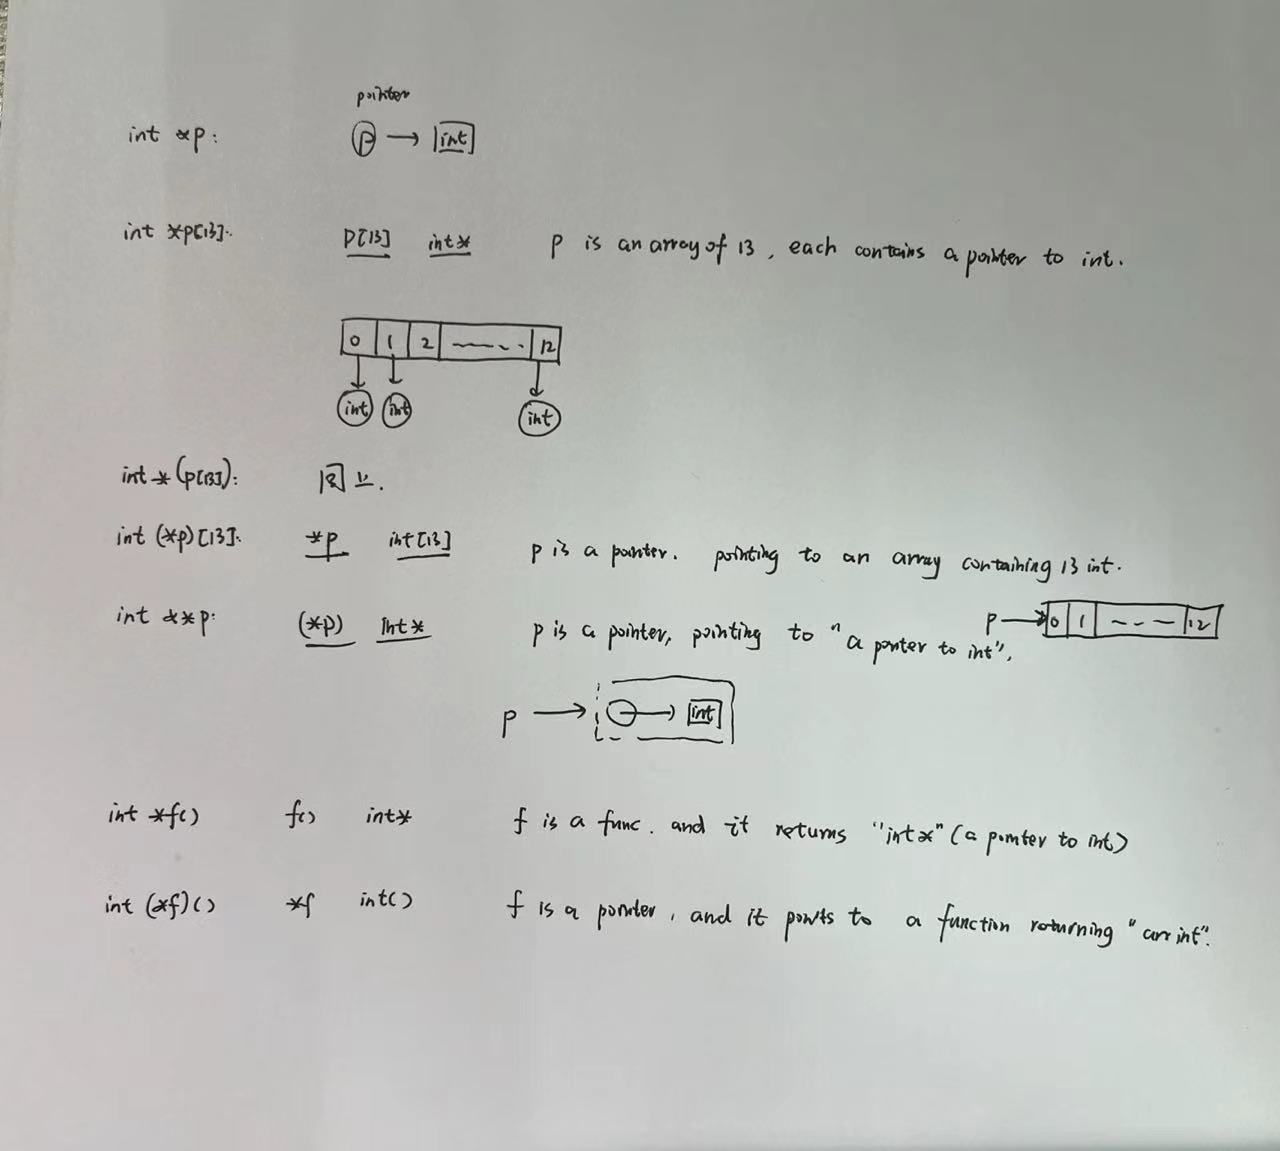 pointer
int *p: p → int
int *p[13]: P[13] int* p is an array of 13, each contains a pointer to int.
0 1 2 ---- 12
int int int
int *(p[13]): 同上.
int (*p)[13]: *p int[13] p is a pointer. pointing to an array containing 13 int.
int **p: (*p) int* p is a pointer, pointing to "a pointer to int".
p → 0 1 --- 12
p → → int
int *f() f() int* f is a func. and it returns "int*" (a pointer to int)
int (*f)() *f int() f is a pointer, and it points to a function returning "an int".